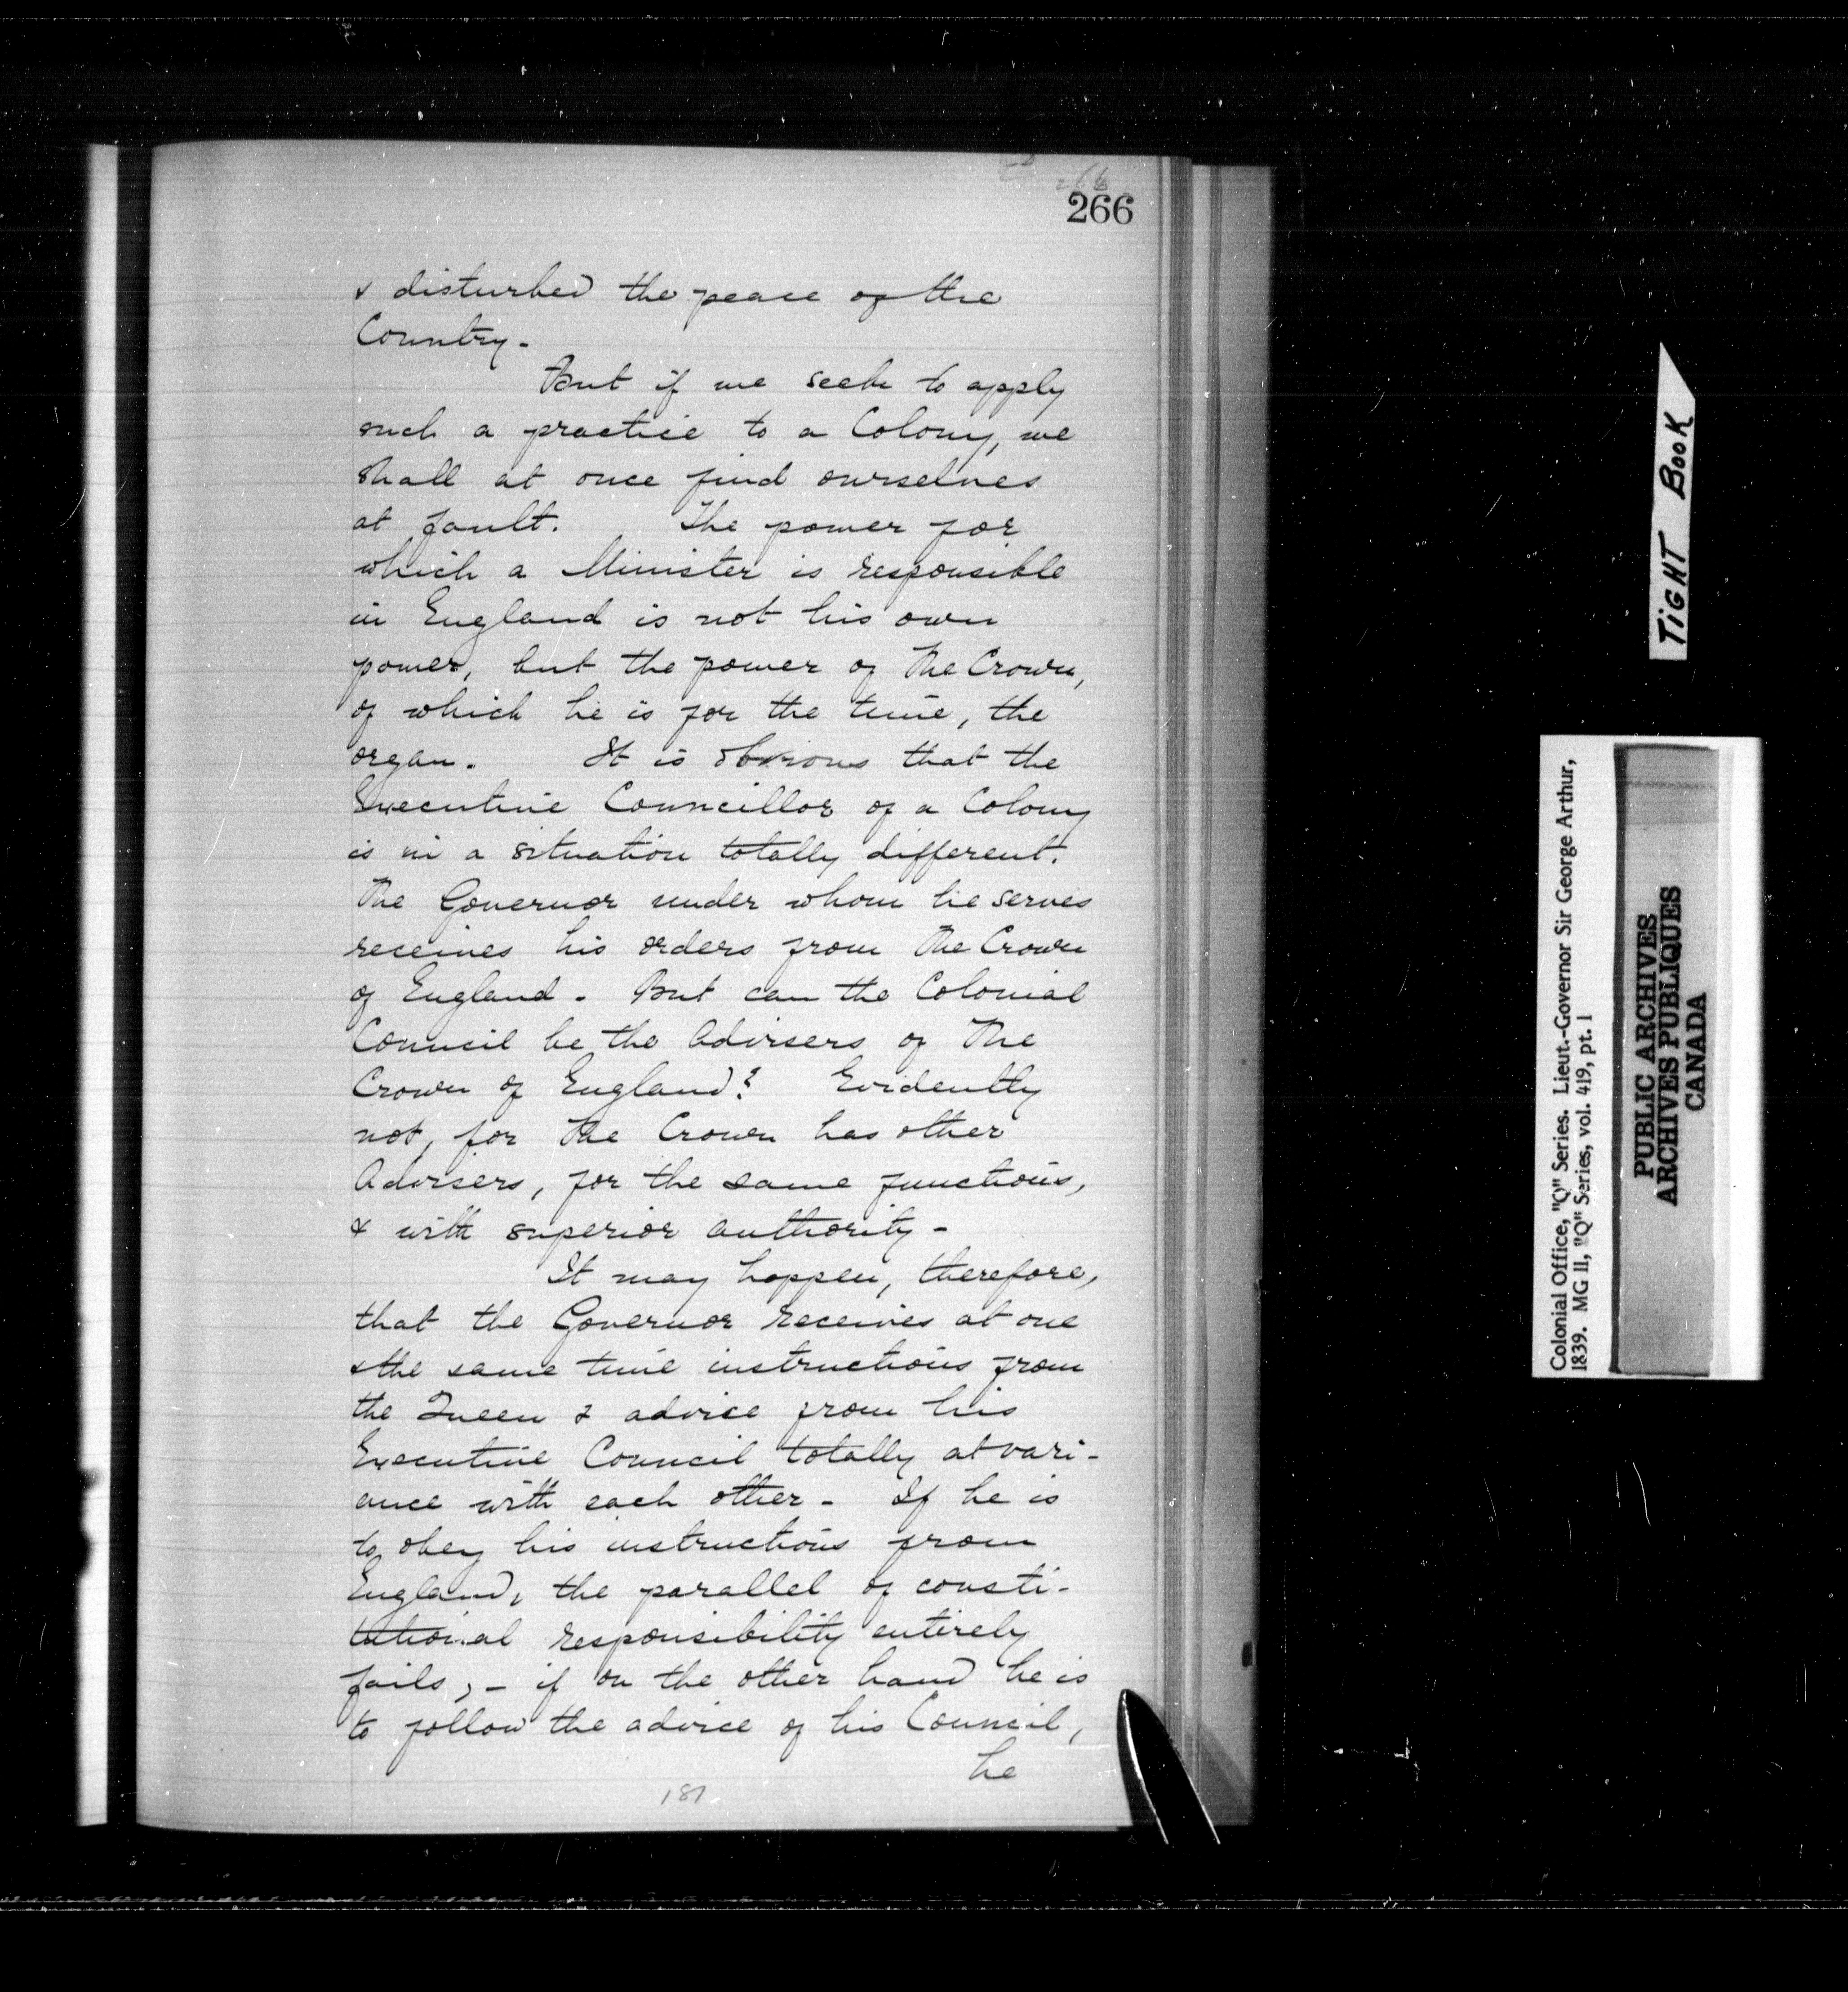 266
266
& disturbed the peace of the
Country -
But if we seek to apply
such a practice to a Colony, we
shall at once find ourselves
at fault. The power for
which a Minister is responsible
in England is not his own
power, but the power of The Crown,
of which he is for the time, the
organ. It is obvious that the
Executive Councillor of a Colony
is in a situation totally different.
The Governor under whom he serves
receives his orders from The Crown
of England - But can the Colonial
Council be the Advisers of The
Crown of England? Evidently
not, for The Crown has other
Advisers, for the same functions,
& with superior authority -
It may happen, therefore,
that the Governor receives at one
& the same time instructions from
the Queen & advice from his
Executive Council totally at vari-
ance with each other - If he is
to obey his instructions from
England, the parallel of consti-
tutional responsibility entirely
fails, - if on the other hand he is
to follow the advice of his Council,
he
181
TIGHT BOOK
Colonial Office, "Q" Series. Lieut.-Governor Sir George Arthur,
1839. MG 11, "Q" Series, vol. 419, pt. 1
PUBLIC ARCHIVES
ARCHIVES PUBLIQUES
CANADA